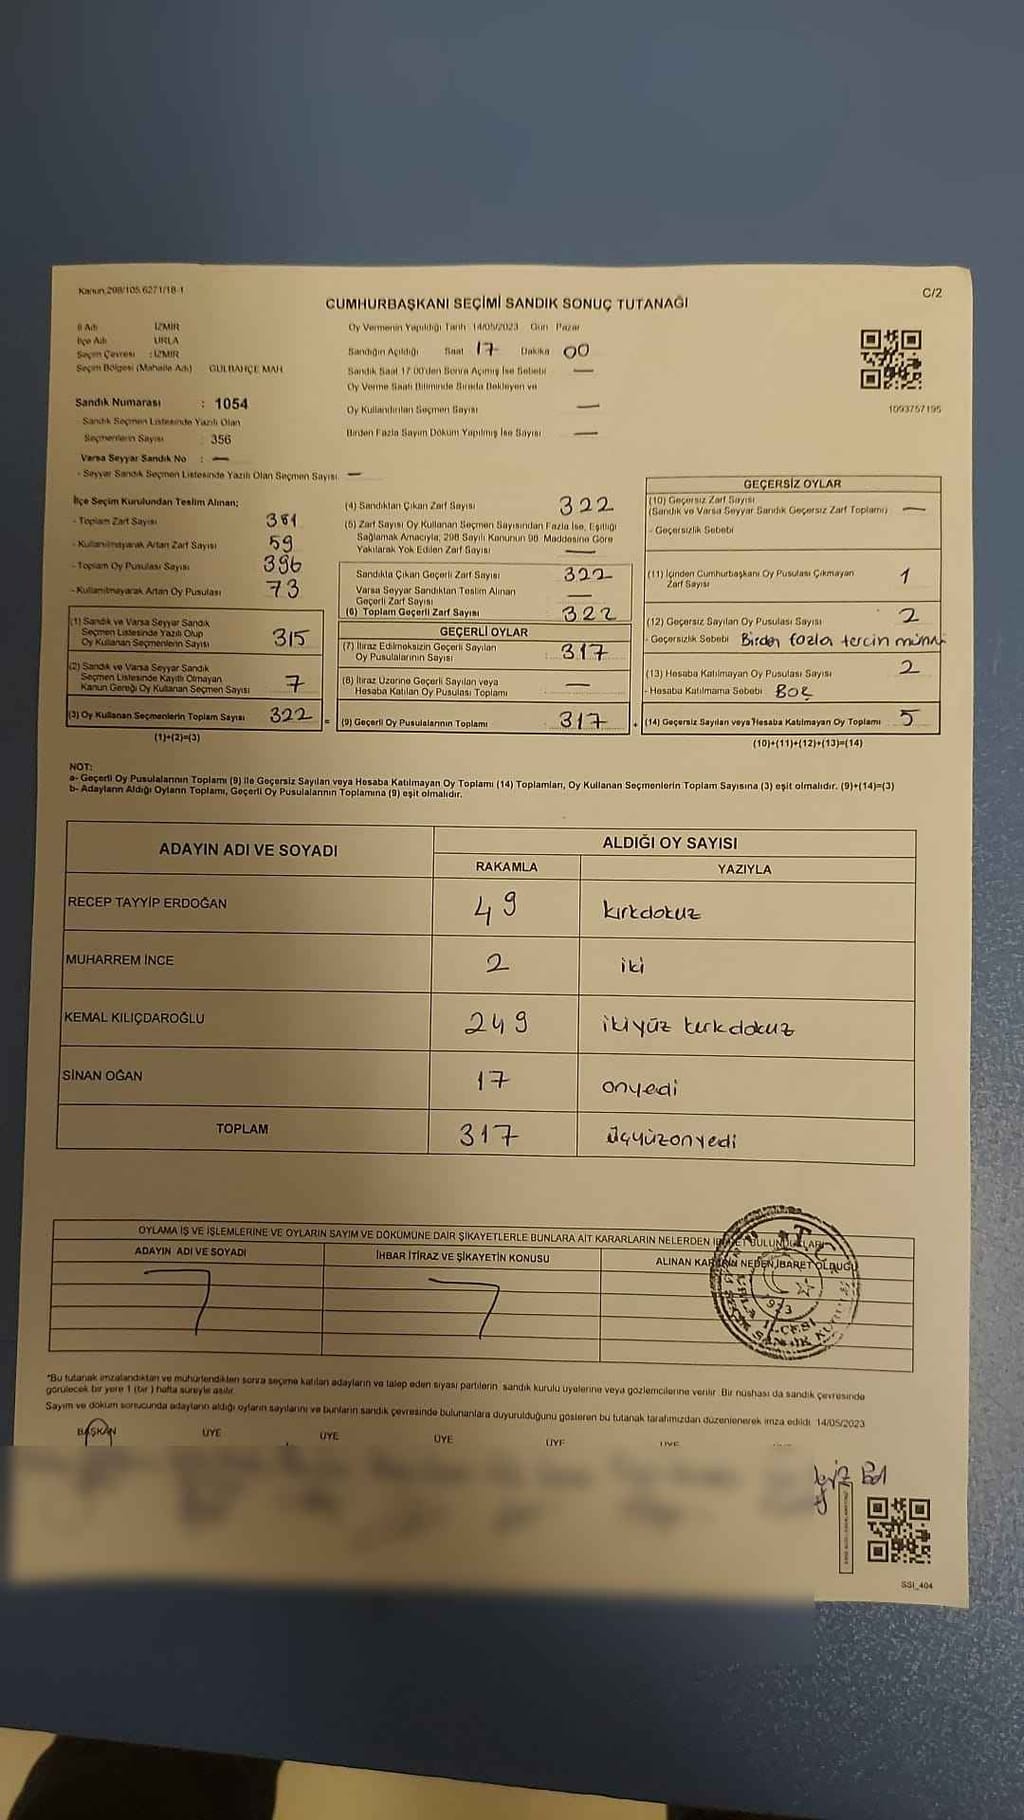 Kanun 298/105 6271/18-1
C/2
CUMHURBAŞKANI SEÇİMİ SANDIK SONUÇ TUTANAĞI
İl Adı İZMİR
İlçe Adı URLA
Seçim Çevresi : İZMİR
Seçim Bölgesi (Mahalle Adı) GÜLBAHÇE MAH
Sandık Numarası : 1054
Sandık Seçmen Listesinde Yazılı Olan
Seçmenlerin Sayısı : 356
Varsa Seyyar Sandık No : —
- Seyyar Sandık Seçmen Listesinde Yazılı Olan Seçmen Sayısı —
Oy Vermenin Yapıldığı Tarih 14/05/2023 Gün Pazar
Sandığın Açıldığı Saat 17 Dakika 00
Sandık Saat 17 00'den Sonra Açımış İse Sebebi —
Oy Verme Saati Bitiminde Sırada Bekleyen ve
Oy Kullandırılan Seçmen Sayısı —
Birden Fazla Sayım Döküm Yapılmış İse Sayısı —
1093757195
İlçe Seçim Kurulundan Teslim Alınan;
- Toplam Zarf Sayısı 381
- Kullanılmayarak Artan Zarf Sayısı 59
- Toplam Oy Pusulası Sayısı 396
- Kullanılmayarak Artan Oy Pusulası 73
(1) Sandık ve Varsa Seyyar Sandık
Seçmen Listesinde Yazılı Olup
Oy Kullanan Seçmenlerin Sayısı 315
(2) Sandık ve Varsa Seyyar Sandık
Seçmen Listesinde Kayıtlı Olmayan
Kanun Gereği Oy Kullanan Seçmen Sayısı 7
(3) Oy Kullanan Seçmenlerin Toplam Sayısı 322
(1)+(2)=(3)
(4) Sandıktan Çıkan Zarf Sayısı 322
(5) Zarf Sayısı Oy Kullanan Seçmen Sayısından Fazla İse, Eşitliği
Sağlamak Amacıyla, 298 Sayılı Kanunun 98. Maddesine Göre
Yakılarak Yok Edilen Zarf Sayısı —
Sandıkta Çıkan Geçerli Zarf Sayısı 322
Varsa Seyyar Sandıktan Teslim Alınan
Geçerli Zarf Sayısı —
(6) Toplam Geçerli Zarf Sayısı 322
GEÇERLİ OYLAR
(7) İtiraz Edilmeksizin Geçerli Sayılan
Oy Pusulalarının Sayısı : 317
(8) İtiraz Üzerine Geçerli Sayılan veya
Hesaba Katılan Oy Pusulası Toplamı —
= (9) Geçerli Oy Pusulalarının Toplamı 317 +
GEÇERSİZ OYLAR
(10) Geçersiz Zarf Sayısı
(Sandık ve Varsa Seyyar Sandık Geçersiz Zarf Toplamı) —
- Geçersizlik Sebebi
(11) İçinden Cumhurbaşkanı Oy Pusulası Çıkmayan
Zarf Sayısı 1
(12) Geçersiz Sayılan Oy Pusulası Sayısı 2
- Geçersizlik Sebebi Birden fazla tercih
(13) Hesaba Katılmayan Oy Pusulası Sayısı 2
- Hesaba Katılmama Sebebi Boş
(14) Geçersiz Sayılan veya Hesaba Katılmayan Oy Toplamı 5
(10)+(11)+(12)+(13)=(14)
NOT:
a- Geçerli Oy Pusulalarının Toplamı (9) ile Geçersiz Sayılan veya Hesaba Katılmayan Oy Toplamı (14) Toplamları, Oy Kullanan Seçmenlerin Toplam Sayısına (3) eşit olmalıdır. (9)+(14)=(3)
b- Adayların Aldığı Oyların Toplamı, Geçerli Oy Pusulalarının Toplamına (9) eşit olmalıdır.
ADAYIN ADI VE SOYADI
ALDIĞI OY SAYISI
RAKAMLA YAZIYLA
RECEP TAYYİP ERDOĞAN 49 kırkdokuz
MUHARREM İNCE 2 iki
KEMAL KILIÇDAROĞLU 249 ikiyüz kırkdokuz
SİNAN OĞAN 17 onyedi
TOPLAM 317 üçyüzonyedi
OYLAMA İŞ VE İŞLEMLERİNE VE OYLARIN SAYIM VE DÖKÜMÜNE DAİR ŞİKAYETLERLE BUNLARA AİT KARARLARIN NELERDEN İBARET BULUNDUKLARI
ADAYIN ADI VE SOYADI
İHBAR İTİRAZ VE ŞİKAYETİN KONUSU
ALINAN KARARIN NEDEN İBARET OLDUĞU
T.C.
1923
URLA İLÇESİ
*Bu tutanak imzalandıktan ve mühürlendikten sonra seçime katılan adayların ve talep eden siyasi partilerin sandık kurulu üyelerine veya gözlemcilerine verilir. Bir nüshası da sandık çevresinde
görülecek bir yere 1 (bir) hafta süreyle asılır.
Sayım ve döküm sonucunda adayların aldığı oyların sayılarını ve bunların sandık çevresinde bulunanlara duyurulduğunu gösteren bu tutanak tarafımızdan düzenlenerek imza edildi. 14/05/2023
BAŞKAN ÜYE ÜYE ÜYE ÜYE ÜYE
SSI_404